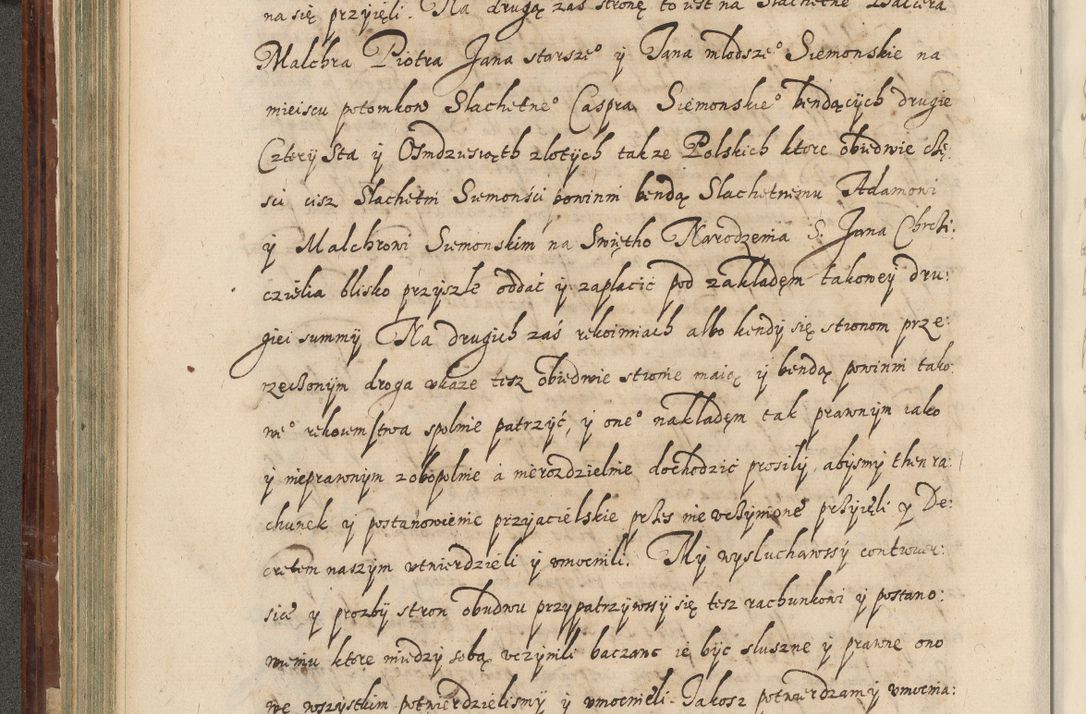 na się przyięli. Na drugą zaś stronę to iest na Slachetne Balcera
Malchra Piotra Jana starsze° y Jana młodsze° Siemonskie na
mieiscu potomkow Slachetne° Caspra Siemonskie° bendących drugie
Cztery Sta y Osmdziesiąth złotych takze Polskich ktore obiedwie chę:
sci cisz Slachetni Siemonsci powinni bendą Slachetnemu Adamowi
y Malchrowi Siemonskim na Swiętho Narodzenia S. Jana Chrcti:
cziela blisko przyszłe oddać y zapłacić pod zakładem takowey dru:
giei summy Na drugich zaś rekoimiach albo kendy się stronom prze:
rzeczonym droga ukaze tesz obiedwie stronie maią y bendą powinni tako
we° rekoiemstwa spolnie patrzyć, y one° nakładem tak prawnym iako
y nieprawnym zobopolnie a nierozdzielnie dochodzić prosily abysmy then ra:
chunek y postanowienie przyiacielskie przes nie uczynione przyięli y De:
cretem naszym utwierdzieli y umocnili. My wysłuchawssy contower:
sie y prozby stron obudwu przypatrzywssy się tesz rachunkowi y postano:
wieniu ktore miedzy sobą uczynili bacząc ie byc słuszne y prawne ono
we wszystkim potwierdzielismy y umocnieli. Jakosz potwierdzamy umocnia: